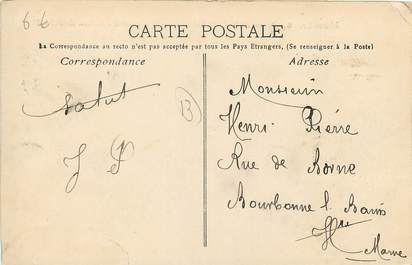 6 €
CARTE POSTALE
La Correspondance au recto n'est pas acceptée par tous les Pays Etrangers, (Se renseigner à la Poste)
Correspondance
Adresse
Salut
J P
B
Monsieur
Henri Pierre
Rue de Borne
Bourbonne l. Bains
Hte
Marne